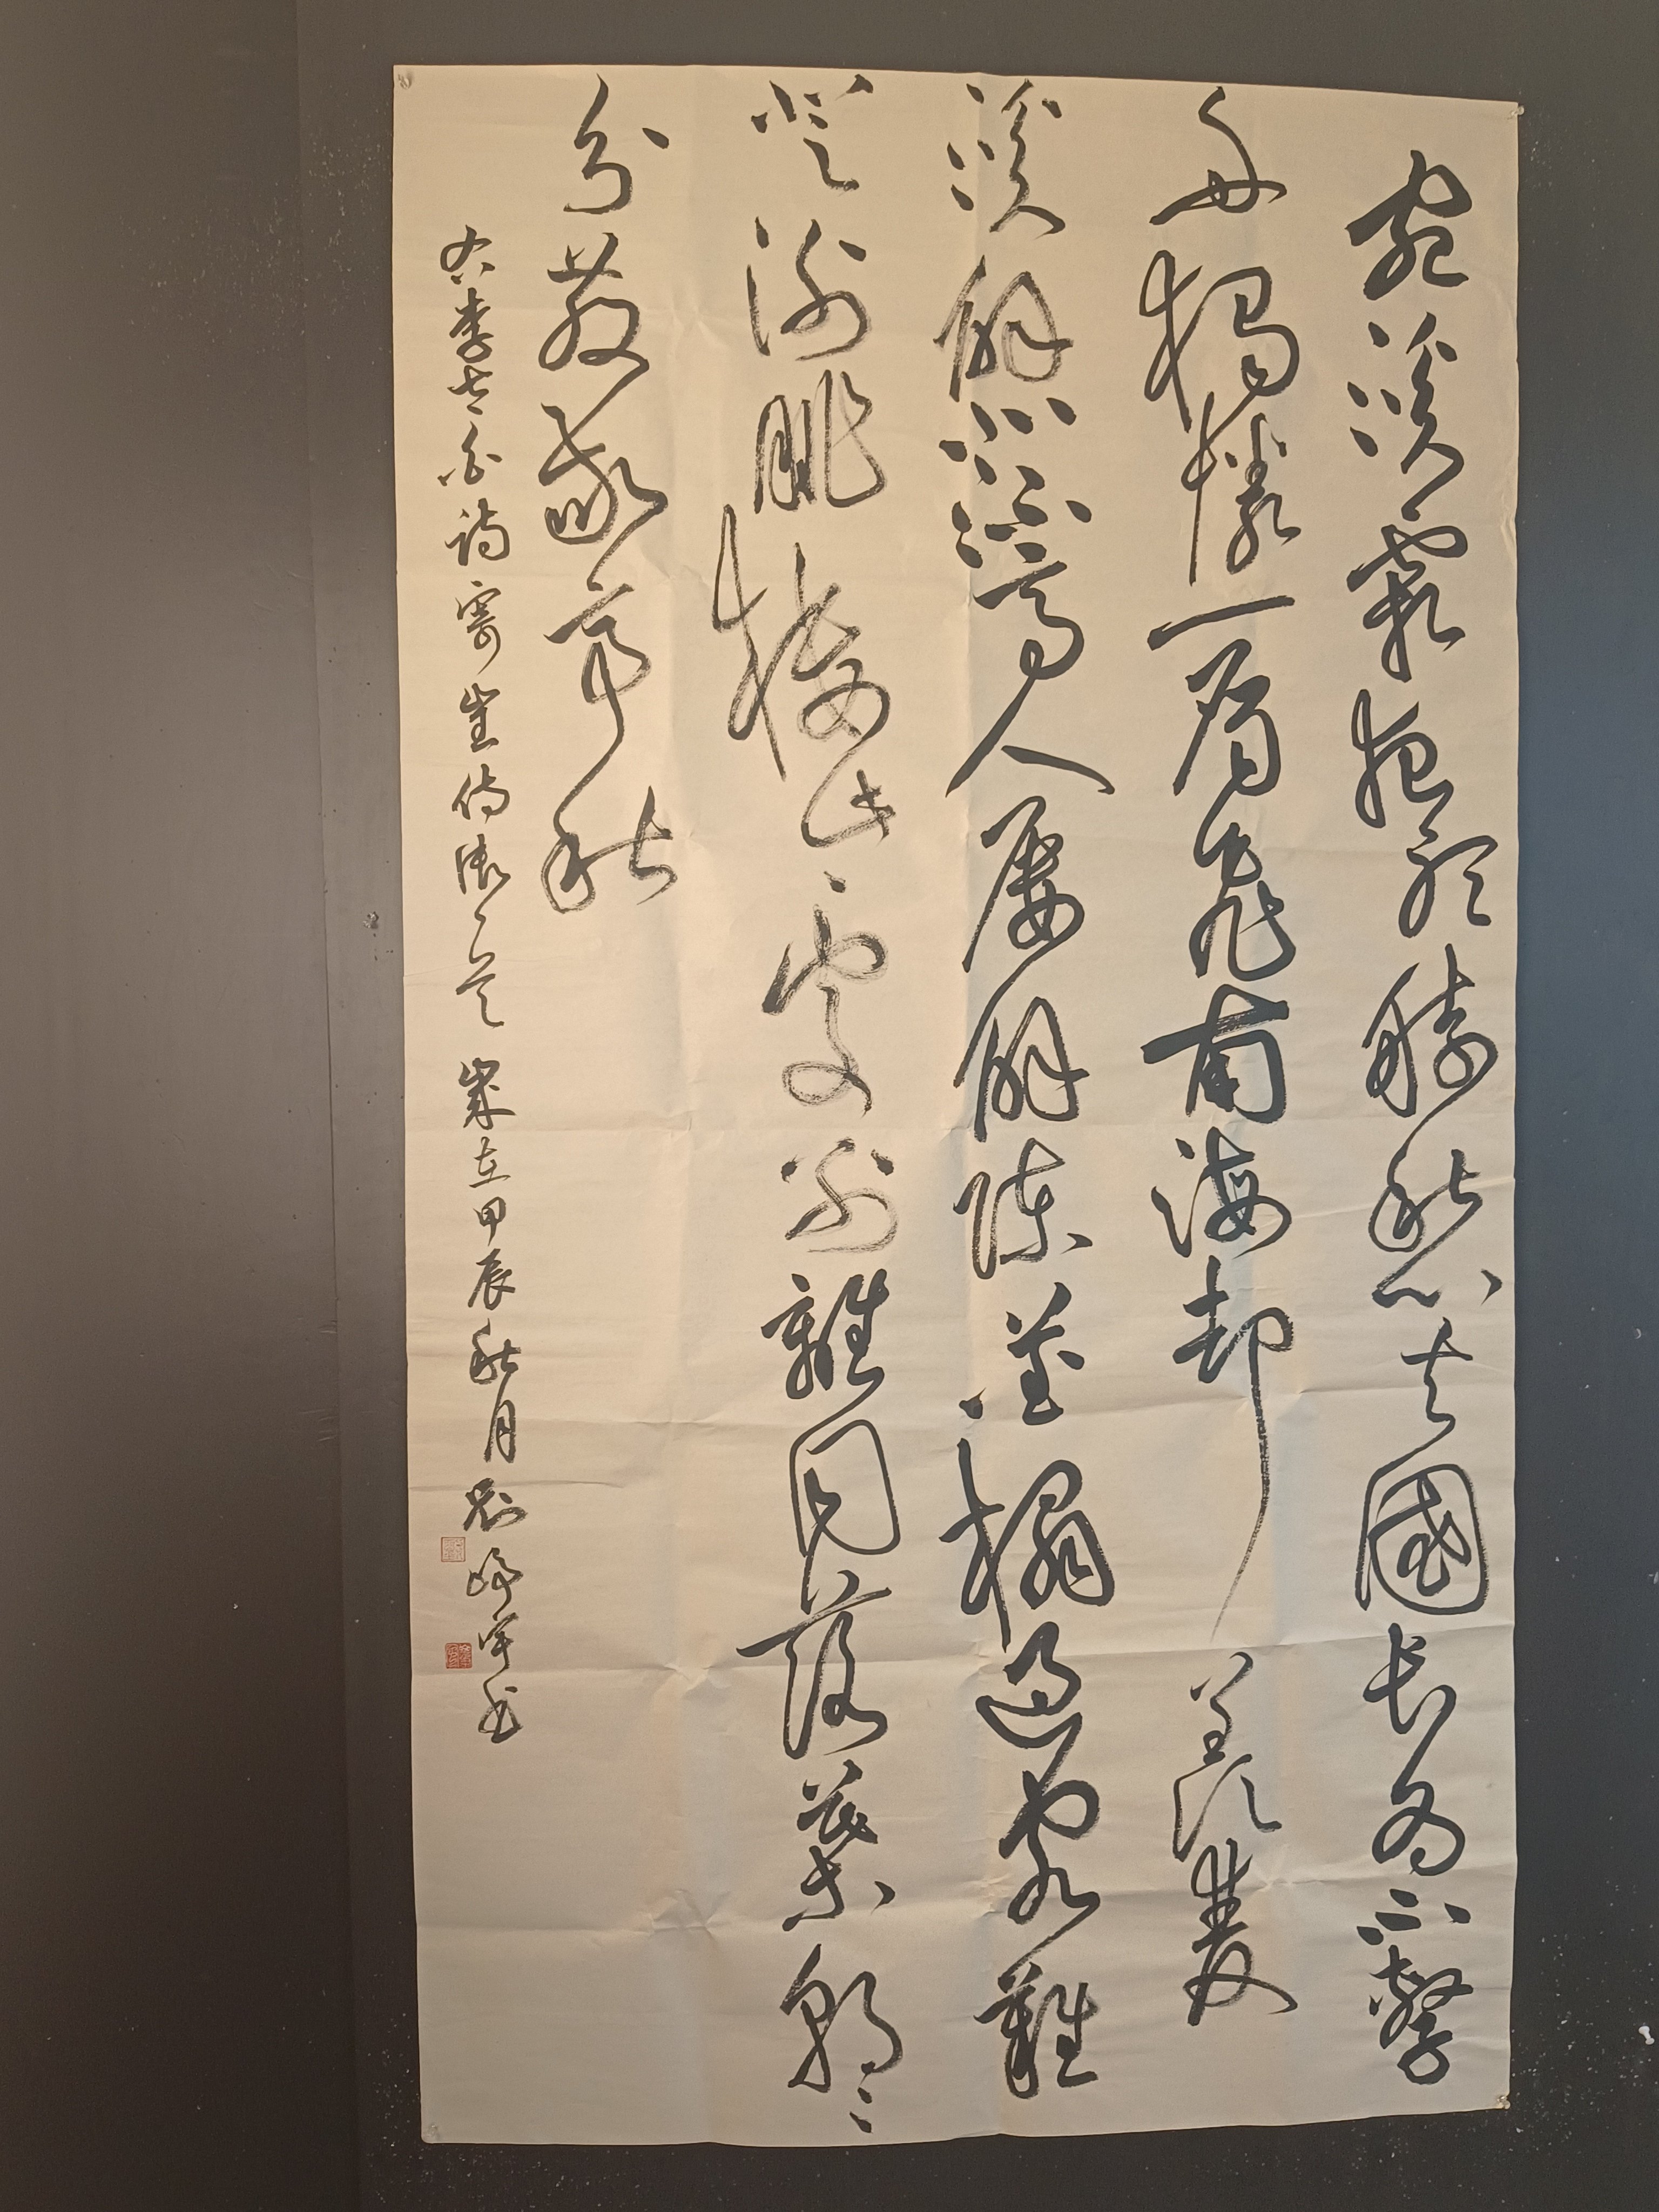 宛溪霜夜聽猿愁去國長為不繫
舟獨憐一雁飛南海却羨雙
溪解北流高人屢解陳蕃榻過客難
登謝朓樓此處別離同落葉朝々
分散敬亭秋
右李太白詩寄崔侍御一首 歲在甲辰秋月 劉 书